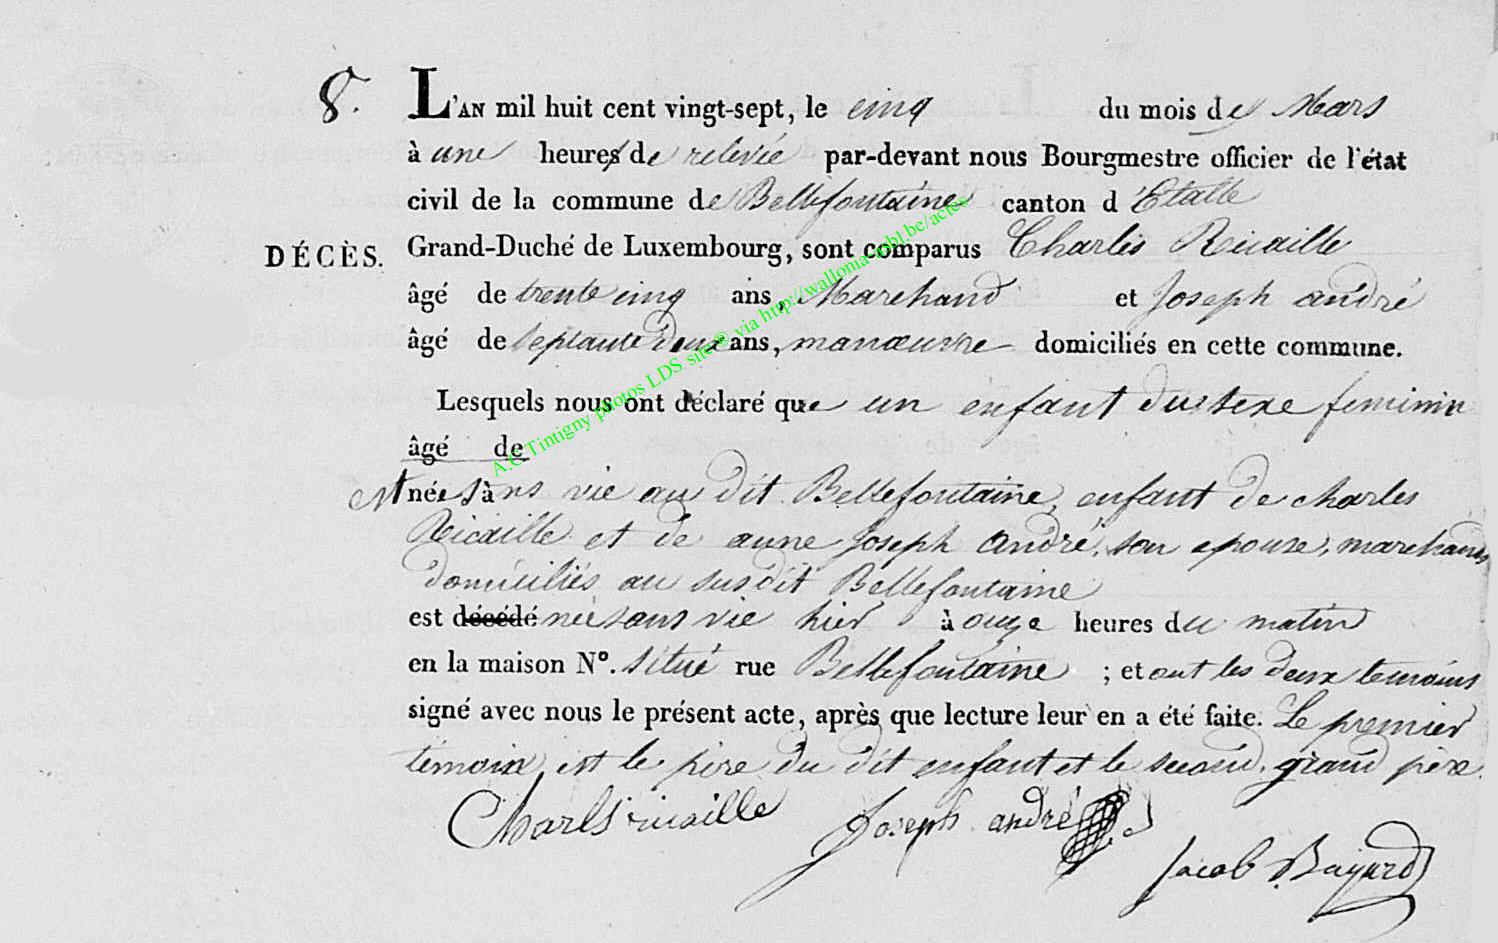 8. L'AN mil huit cent vingt-sept, le cinq du mois de Mars
à une heures de relevée par-devant nous Bourgmestre officier de l'état
civil de la commune de Bellefontaine canton d'Etalle
DÉCÈS. Grand-Duché de Luxembourg, sont comparus Charles Ricaille
âgé de trente cinq ans, Marchand et Joseph andré
âgé de septante deux ans, manœuvre domiciliés en cette commune.
Lesquels nous ont déclaré que un enfant du sexe feminin
âgé de
est née sans vie au dit Bellefontaine, enfant de charles
Ricaille et de anne Joseph andré, son epouse, marchands
domiciliés au susdit Bellefontaine
est décédé née sans vie hier à onze heures du matin
en la maison N°. situé rue Bellefontaine ; et ont les deux temoins
signé avec nous le présent acte, après que lecture leur en a été faite. Le premier
témoin est le pére du dit enfant et le second, grand pére.
Charls ricaille Joseph andré
Jacob Bayard
A.C Tintigny photos LDS site® via http://wallonia-asbl.be/actes